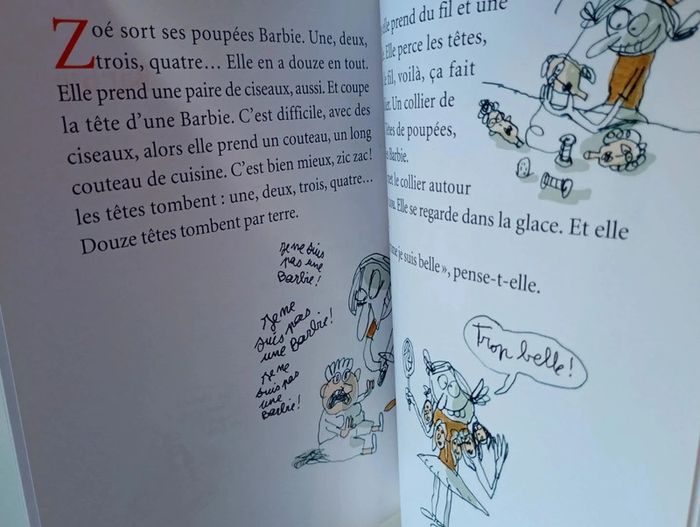 Zoé sort ses poupées Barbie. Une, deux,
trois, quatre… Elle en a douze en tout.
Elle prend une paire de ciseaux, aussi. Et coupe
la tête d'une Barbie. C'est difficile, avec des
ciseaux, alors elle prend un couteau, un long
couteau de cuisine. C'est bien mieux, zic zac !
les têtes tombent : une, deux, trois, quatre…
Douze têtes tombent par terre.
Je ne suis
pas une
Barbie !
Je ne
suis pas
une Barbie !
Je ne
suis pas
une
Barbie !
elle prend du fil et une
Elle perce les têtes,
fil, voilà, ça fait
Un collier de
de poupées,
Barbie.
et le collier autour
Elle se regarde dans la glace. Et elle
je suis belle », pense-t-elle.
Trop belle !